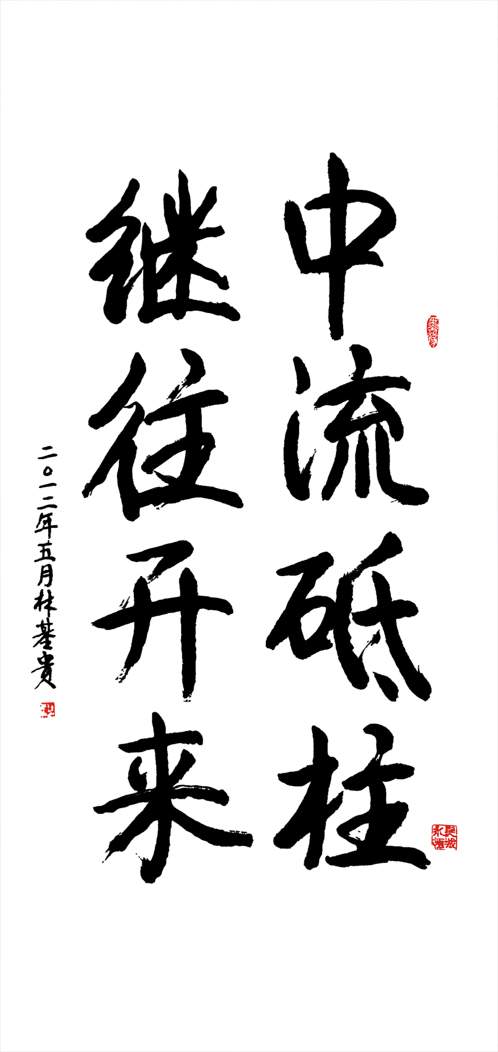 中流砥柱
继往开来
二〇一二年五月林基贵